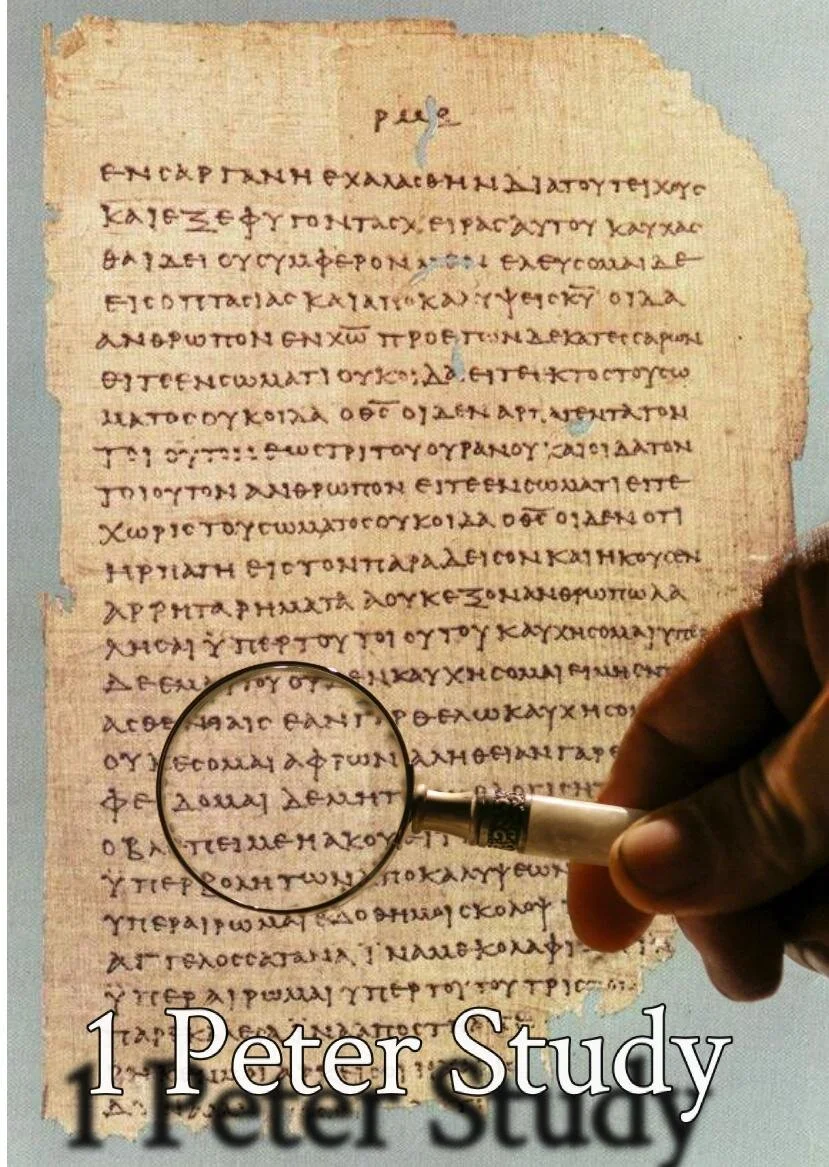 ΕΝϹΑΡΓΑΝΗΕΧΑΛΑϹΘΗΝΔΙΑΤΟΥΤΕΙΧΟΥϹ
ΚΑΙΕΞΕΦΥΓΟΝΤΑϹΧΕΙΡΑϹΑΥΤΟΥΚΑΥΧΑϹ
ΘΑΙΔΕΙΟΥϹΥΜΦΕΡΟΝ ΕΛΕΥϹΟΜΑΙΔΕ
ΕΙϹΟΠΤΑϹΙΑϹΚΑΙΑΠΟΚΑΛΥΨΕΙϹΚ̅Υ̅ΟΙΔΑ
ΑΝΘΡΩΠΟΝΕΝΧ̅Ω̅ΠΡΟΕΤΩΝΔΕΚΑΤΕϹϹΑΡΩΝ
ΕΙΤΕΕΝϹΩΜΑΤΙΟΥΚΟΙΔΑΕΙΤΕΕΚΤΟϹΤΟΥϹΩ
ΜΑΤΟϹΟΥΚΟΙΔΑΟΘ̅Ϲ̅ΟΙΔΕΝΑΡΠΑΓΕΝΤΑΤΟΝ
ΤΟΙΟΥΤΟΝΕΩϹΤΡΙΤΟΥΟΥΡΑΝΟΥΚΑΙΟΙΔΑΤΟΝ
ΤΟΙΟΥΤΟΝΑΝΘΡΩΠΟΝΕΙΤΕΕΝϹΩΜΑΤΙΕΙΤΕ
ΧΩΡΙϹΤΟΥϹΩΜΑΤΟϹΟΥΚΟΙΔΑΟΘ̅Ϲ̅ΟΙΔΕΝΟΤΙ
ΗΡΠΑΓΗΕΙϹΤΟΝΠΑΡΑΔΕΙϹΟΝΚΑΙΗΚΟΥϹΕΝ
ΑΡΡΗΤΑΡΗΜΑΤΑΑΟΥΚΕΞΟΝΑΝΘΡΩΠΩΛΑ
ΛΗϹΑΙΫΠΕΡΤΟΥΤΟΙΟΥΤΟΥΚΑΥΧΗϹΟΜΑΙΥΠΕΡ
ΔΕΕΜΑΥΤΟΥΟΥΔΕΝΚΑΥΧΗϹΟΜΑΙΕΙΜΗΕΝΤ
ΑϹΘΕΝΕΙΑΙϹΕΑΝΓΑΡΘΕΛΩΚΑΥΧΗϹΟ
ΟΥΚΕϹΟΜΑΙΑΦΡΩΝΑΛΗΘΕΙΑΝΓΑΡΕ
ΦΕΙΔΟΜΑΙΔΕΜΗΤ ΛΟΓΙϹΗΤ
ΟΒΛΕΠΕΙΜΕΗΑΚΟΥΕΙΤΙ
ΥΠΕΡΒΟΛΗΤΩΝΑΠΟΚΑΛΥΨΕΩΝ
ΥΠΕΡΑΙΡΩΜΑΙΕΔΟΘΗΜΟΙϹΚΟΛΟΨ
ΑΓΓΕΛΟϹϹΑΤΑΝΑΪΝΑΜΕΚΟΛΑΦΙ
ΫΠΕΡΑΙΡΩΜΑΙΥΠΕΡΤΟΥΤΟΥΤΡΙϹ
ΠΑΡΕΚΑΛΕϹΑΪΝΑΑΠΟϹΤ
1 Peter Study